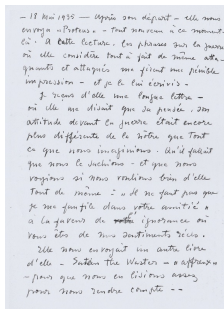 — 18 Mai 1935 — Après son départ — elle nous
envoya « Proteus ». Tout nouveau à ce moment
là. A cette lecture, les phrases sur la guerre
où elle considère tout à fait de même atta-
quants et attaqués me firent une pénible
impression — et je le lui écrivis.
Je reçus d'elle une longue lettre —
où elle me disait que sa pensée, son
attitude devant la guerre était encore
plus différente de la nôtre que tout
ce que nous imaginions. Qu'il fallait
que nous le sachions — et que nous
voyions si nous voulions bien d'elle
tout de même : « Il ne faut pas que
je me faufile dans votre amitié »
à la faveur de ignorance où
vous êtes de mes sentiments réels.
Elle nous envoyait un autre livre
d'elle — Satan The Waster — « affreux »
— pour que nous en lisions assez
pour nous rendre compte —